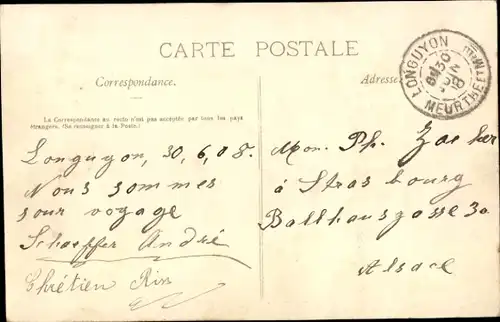 CARTE POSTALE
Correspondance.
Adresse
La Correspondance au recto n'est pas acceptée par tous les pays
étrangers. (Se renseigner à la Poste.)
LONGUYON
MEURTHE
Longuyon, 30, 6, 08.
Nous sommes
sour voyage
Schaeffer André
Chrétien
Mon. Ph.
à Strasbourg
Ballhausgasse 30
Alsace